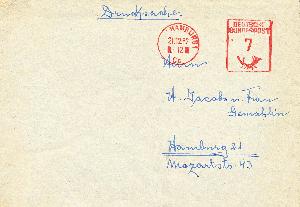 Drucksache
HAMBURG 1
21.12.
12
DEUTSCHE
BUNDESPOST
7
Herrn
H. Jacobsen u. Frau
Gemahlin
Hamburg 21
Mozartstr. 43